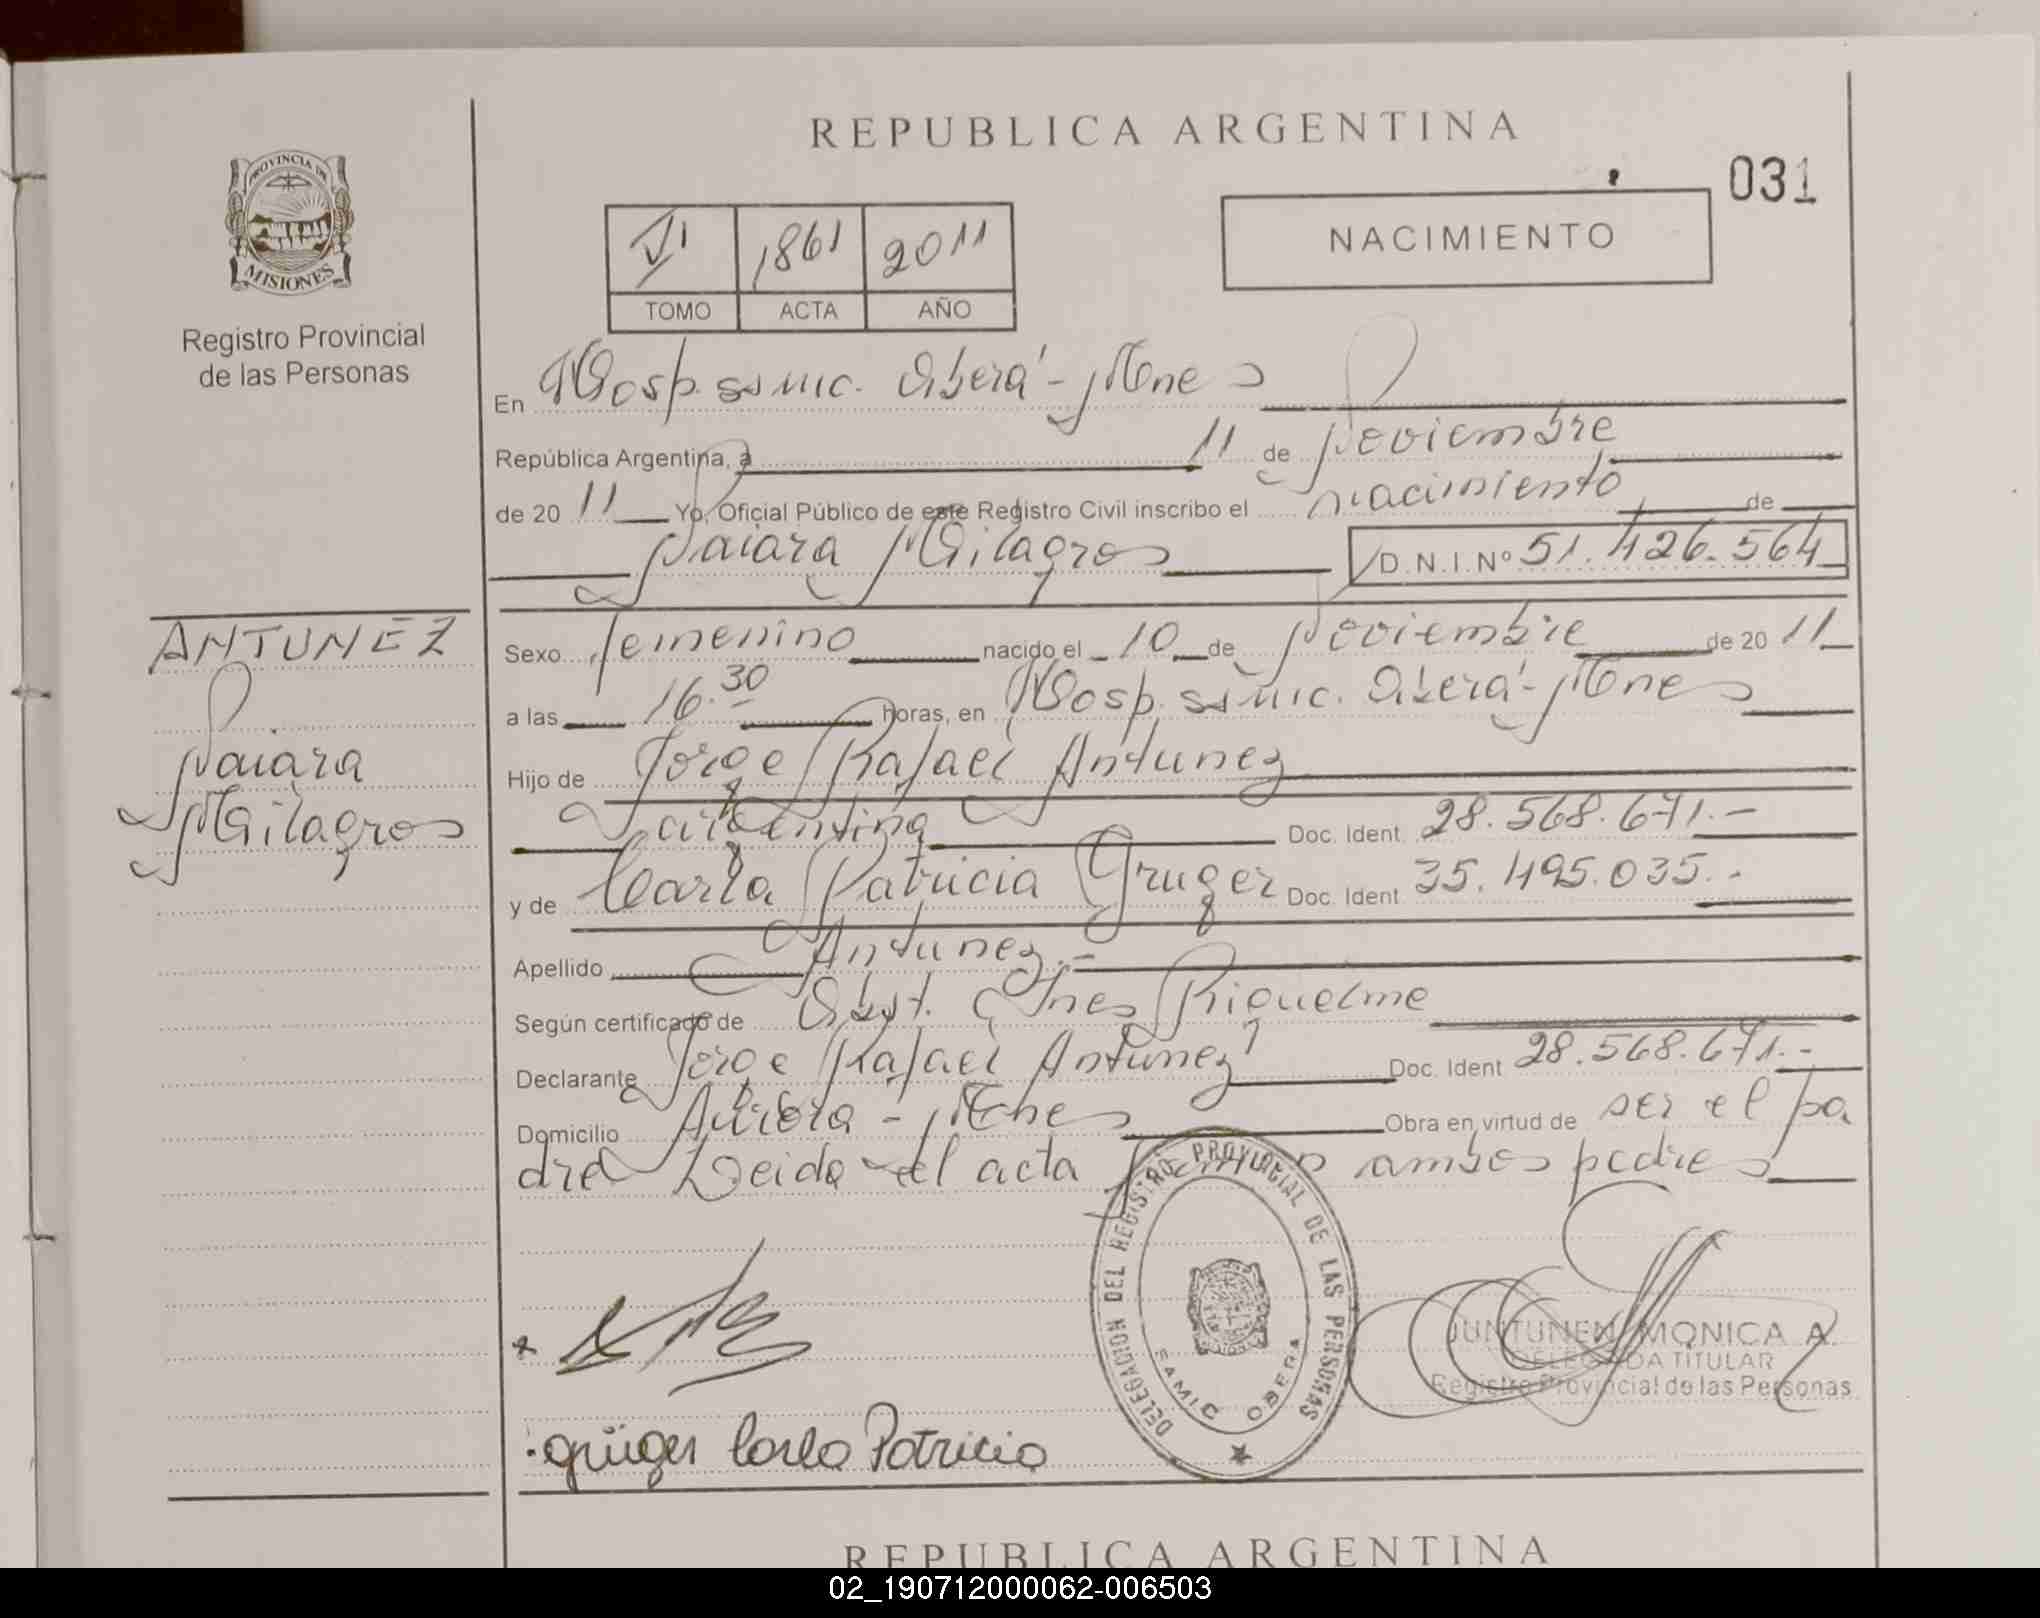 REPUBLICA ARGENTINA
031
PROVINCIA DE
MISIONES
Registro Provincial
de las Personas
1861 2011
TOMO ACTA AÑO
NACIMIENTO
En Hosp. ssmic. Oberá - Mnes
República Argentina, a 11 de Noviembre
de 20 11 Yo, Oficial Público de este Registro Civil inscribo el nacimiento de
Naiara Milagros D.N.I.Nº 51.426.564
ANTUNEZ
Naiara
Milagros
Sexo femenino nacido el 10 de Noviembre de 20 11
a las 16.30 horas, en Hosp. ssmic. Oberá - Mnes
Hijo de Jorge Rafael Antunez
argentina Doc. Ident. 28.568.671.-
y de Carla Patricia Gruger Doc. Ident 35.495.035.-
Apellido Antunez.-
Según certificado de Obst. Ines Riquelme
Declarante Jorge Rafael Antunez Doc. Ident 28.568.671.-
Domicilio Aurora - Mnes Obra en virtud de ser el pa
dre Leida el acta ambos padres
DELEGACION DEL REGISTRO PROVINCIAL DE LAS PERSONAS
SAMIC OBERA
JUNTUNEN MONICA A.
DELEGADA TITULAR
Registro Provincial de las Personas
grüger Carla Patricia
REPUBLICA ARGENTINA
02_190712000062-006503